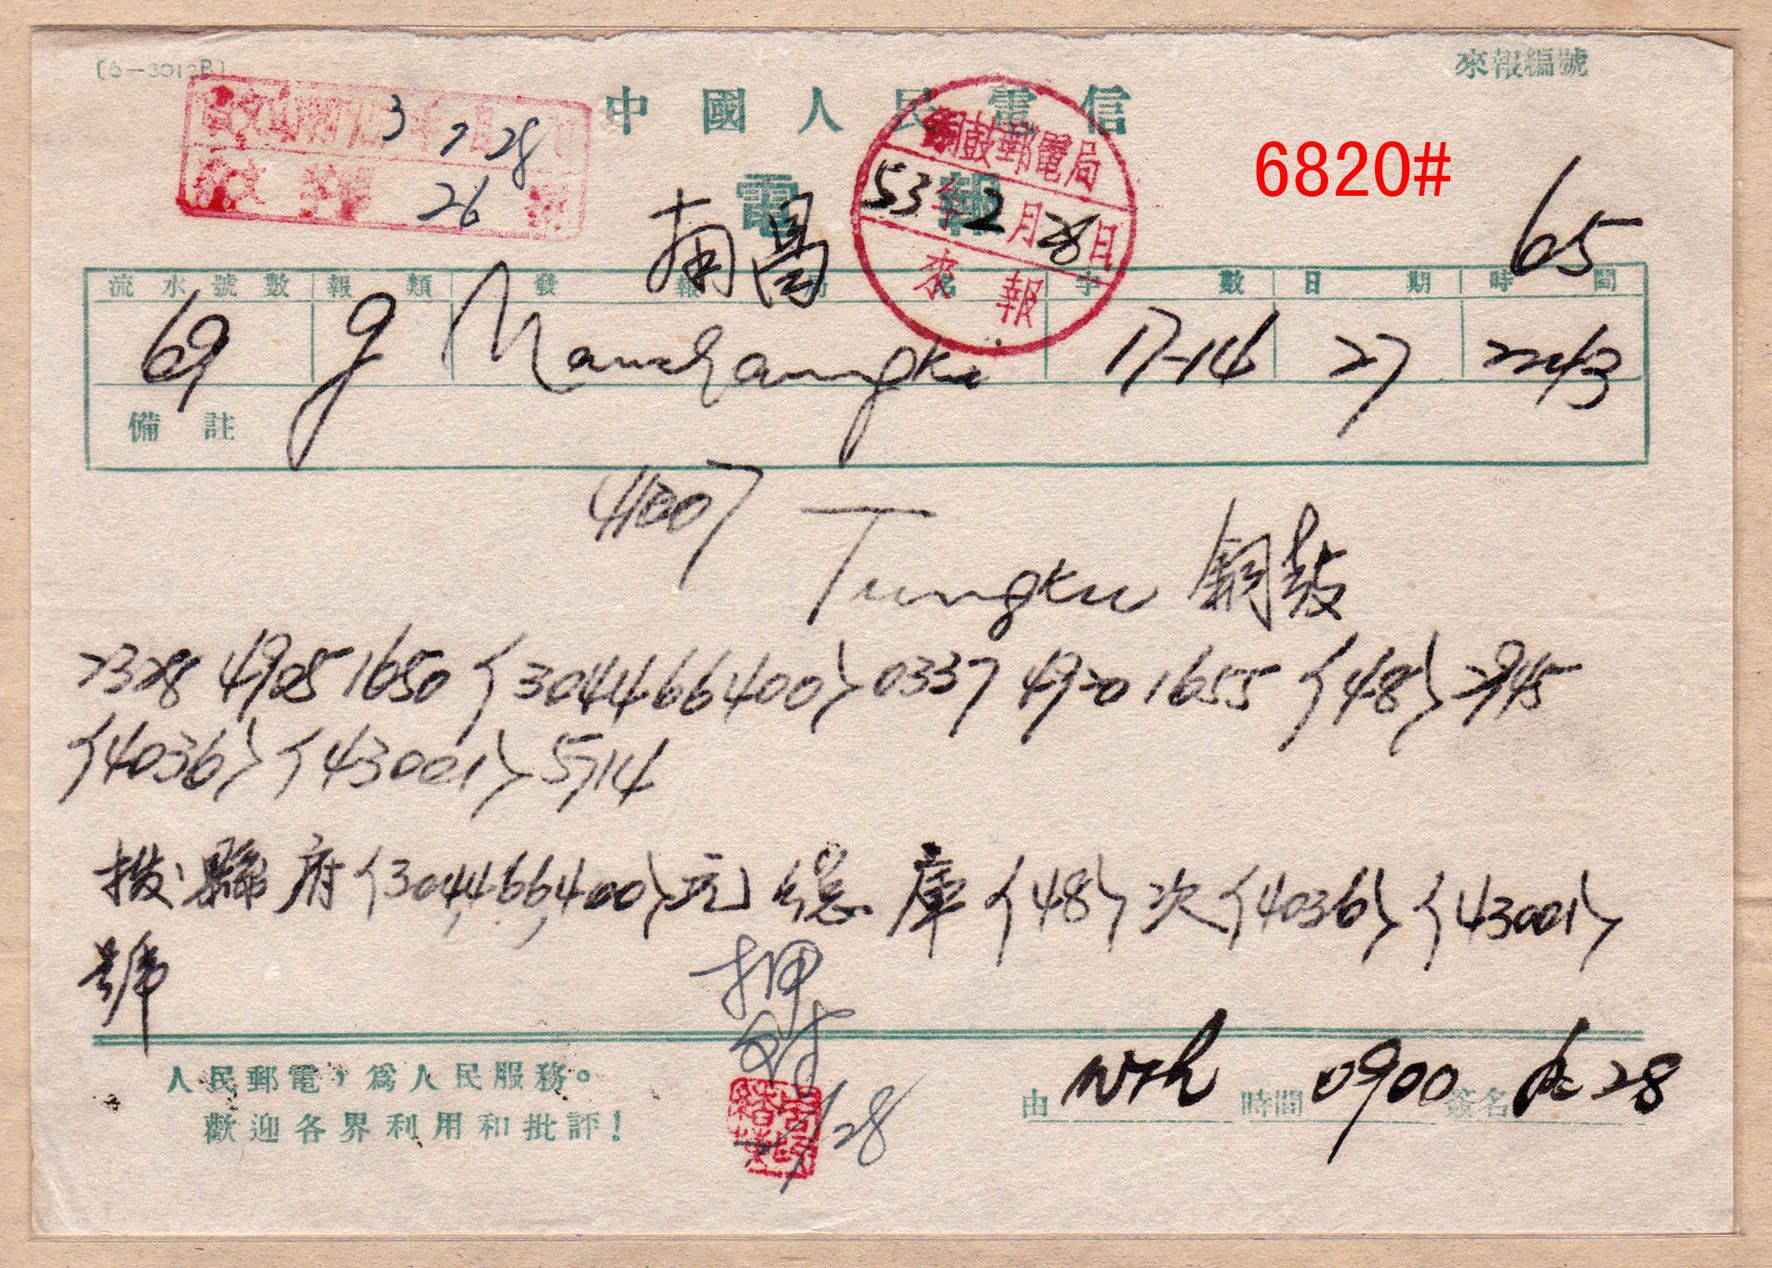 [6—3012B]
來報編號
中國人民電信
6820#
3 2 28
26
銅鼓郵電局
53年2月28日
來報
電報
65
南昌
流水號數 報類 發報局名 字數 日期 時間
69 g Nanchangki 17-14 27 2243
備註
41007 Tungku 銅鼓
2328 4905 1650 〈304466400〉 0337 4920 1655 〈48〉 2945
〈4036〉〈43001〉 5714
撥縣府〈304,466,400〉元總庫〈48〉次〈4036〉〈43001〉
號
押
對
2/28
人民郵電，為人民服務。
歡迎各界利用和批評！
由 時間 0900 簽名 28